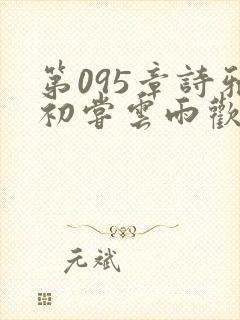 第095章詩雅
初嘗雲雨歡
元斌